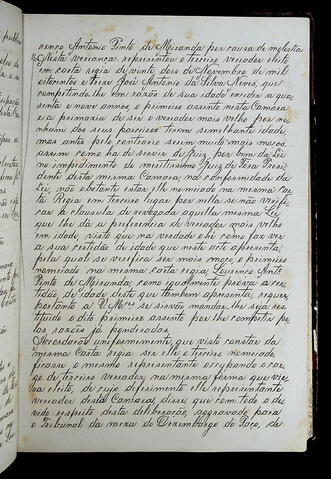 renço Antonio Pinto de Miranda por causa de molestia
Nesta vereança representou o terceiro vereador eleito
em carta regia de vinte dois de Novembro de mil
oitocentos e treze José Antonio da Silva Neves, que
competindo-lhe em razão de sua idade exceder a qua
renta e nove annos o primeiro assento nesta Camara
e a primazia de ser o vereador mais velho por ne
nhum dos seus parceiros terem semelhante idade,
mas antes pelo contrario serem muito mais moços,
assim como ha de servir de Juiz por bem da Lei
no impedimento do meritissimo Juiz de Fora Presi
dente desta mesma Camara, na conformidade da
Lei, não obstante estar elle nomeado na mesma Car
ta Regia em terceiro lugar por nella se não verifi
car a clausula de revogada aquella mesma Lei
que lhe dá a preferencia de vereador mais velho
em idade, visto que na verdade o he como faz ver
a sua certidão de idade que neste acto apresenta,
pela qual se verifica ser mais moço o primeiro
nomeado na mesma carta regia, Lourenço Antº
Pinto de Miranda, como igualmente prova a cer
tidão de idade deste que tambem apresenta; requer
portanto a V. Mces se sirvão mandar-lhe seja res
tituido o dito primeiro assento por lhe competir pe
las razões já ponderadas.
Accordarão uniformemente que visto constar da
mesma Carta regia ser elle o terceiro nomeado,
ficasse o mesmo representante occupando o car
go de terceiro vereador, na mesma forma que vi
era eleito, de cujo deferimento elle representante
vereador desta Camara, disse que com todo o de
vido respeito desta deliberação, aggravado para
o Tribunal da meza do Dezembargo do Paço, de